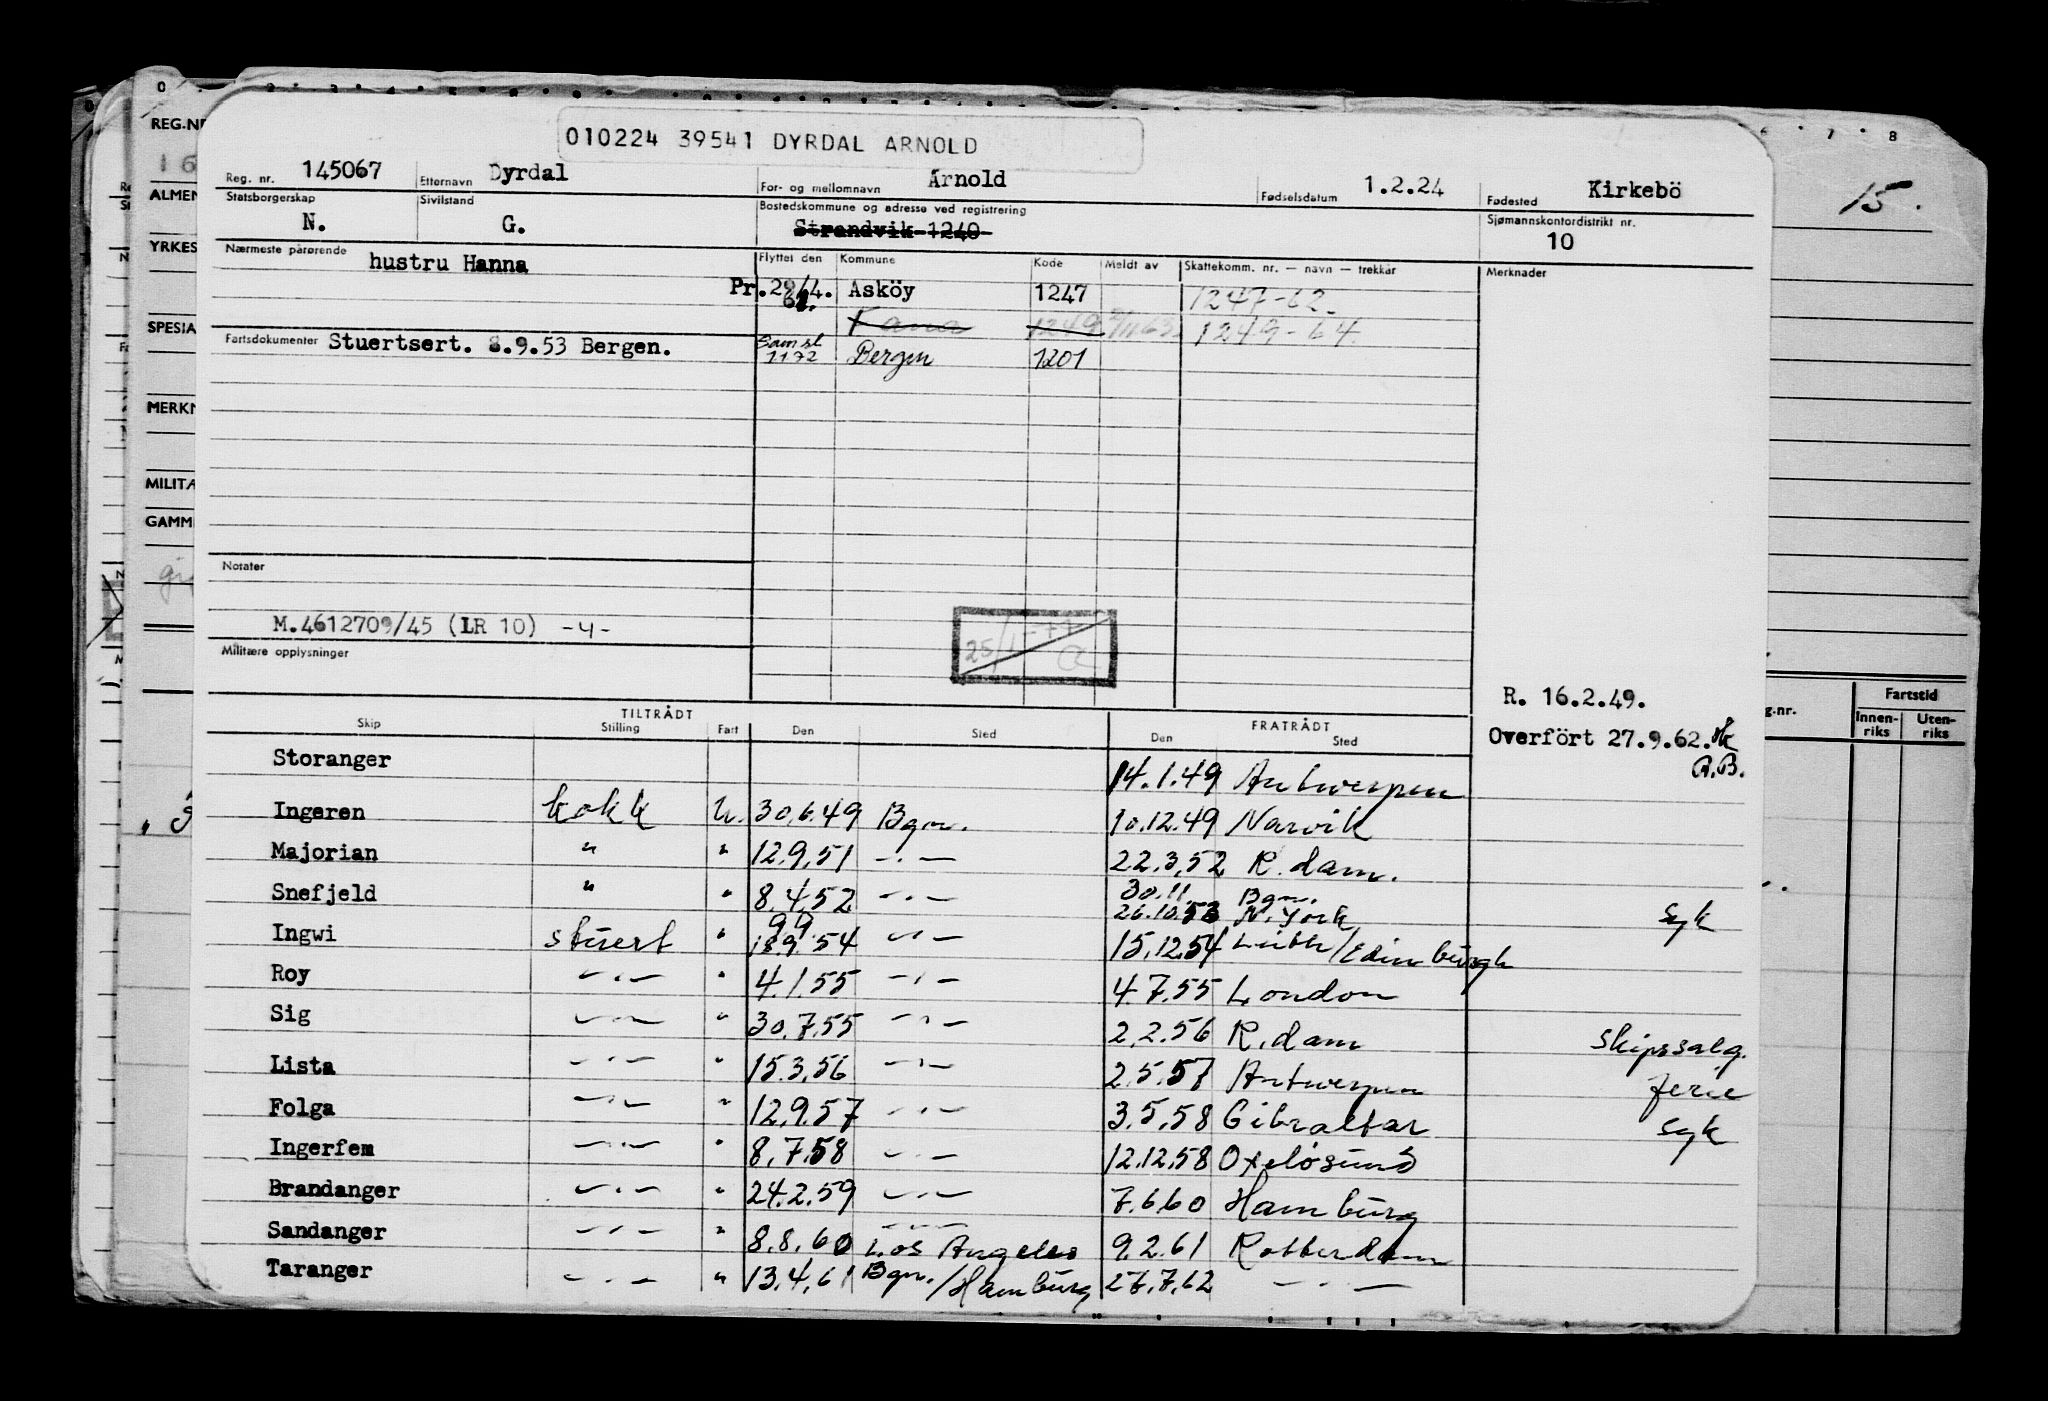 010224 39541 DYRDAL ARNOLD
Reg. nr. 145067 Etternavn Dyrdal For- og mellomnavn Arnold Fødselsdatum 1.2.24 Fødested Kirkebö
Statsborgerskap N. Sivilstand G. Bostedskommune og adresse ved registrering Strandvik 1240 Sjømannskontordistrikt nr. 10
Nærmeste pårørende hustru Hanna Flyttet den Kommune Kode Meldt av Skattekomm. nr. — navn — trekkår Merknader
Pr. 28/4. 62. Asköy 1247 1247-62.
Fana 1249 1249-64.
Fartsdokumenter Stuertsert. 8.9.53 Bergen. Samsl 1172 Bergen 1201
Notater
M.4612709/45 (LR 10) -4-
Militære opplysninger
R. 16.2.49.
Overfört 27.9.62.
R.B.
TILTRÅDT FRATRÅDT
Skip Stilling Fart Den Sted Den Sted
Storanger 14.1.49 Antwerpen
Ingeren kokk U. 30.6.49 Bgn. 10.12.49 Narvik
Majorian " " 12.9.51 -.- 22.3.52 R.dam.
Snefjeld " " 8.4.52 -.- 30.11. Bgn.
26.10.53 N.York syk
Ingwi stuert " 9.9. 18.9.54 -.- 15.12.54 Leith/Edinburgh
Roy -.- " 4.1.55 -.- 4.7.55 London
Sig -.- " 30.7.55 -.- 2.2.56 R.dam skipssalg.
Lista -.- " 15.3.56 -.- 2.5.57 Antwerpen ferie
Folga -.- " 12.9.57 -.- 3.5.58 Gibraltar syk
Ingerfem -.- " 8.7.58 -.- 12.12.58 Oxelösund
Brandanger -.- " 24.2.59 -.- 7.6.60 Hamburg
Sandanger -.- " 8.8.60 Los Angeles 9.2.61 Rotterdam
Taranger -.- " 13.4.61 Bgn./Hamburg 27.7.62 -.-
REG.NR
16
ALMEN
YRKES
SPESIA
MERKN
MILITÆ
GAMM
15.
g.nr.
Fartstid
Innen-riks Uten-riks